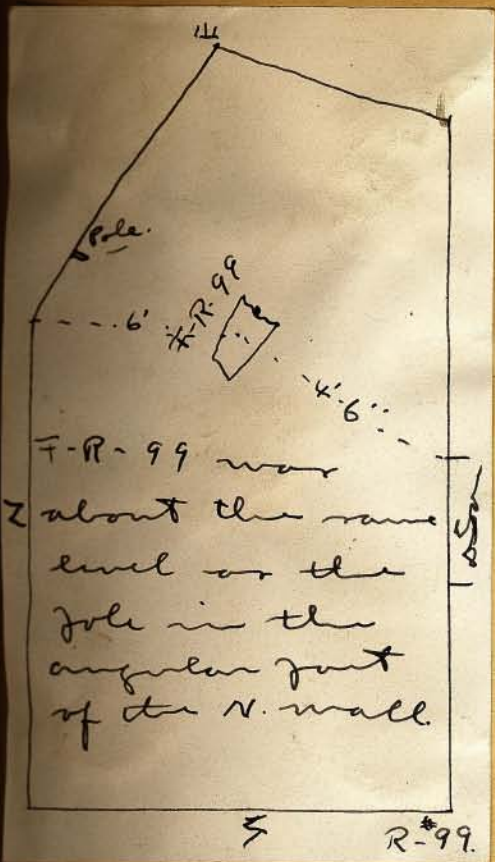 E
Pole.
6'
F-R-99
4'-6"
F-R-99 was
N about the same
level as the
pole in the
angular part
of the N. wall.
Door
W
R-#99.